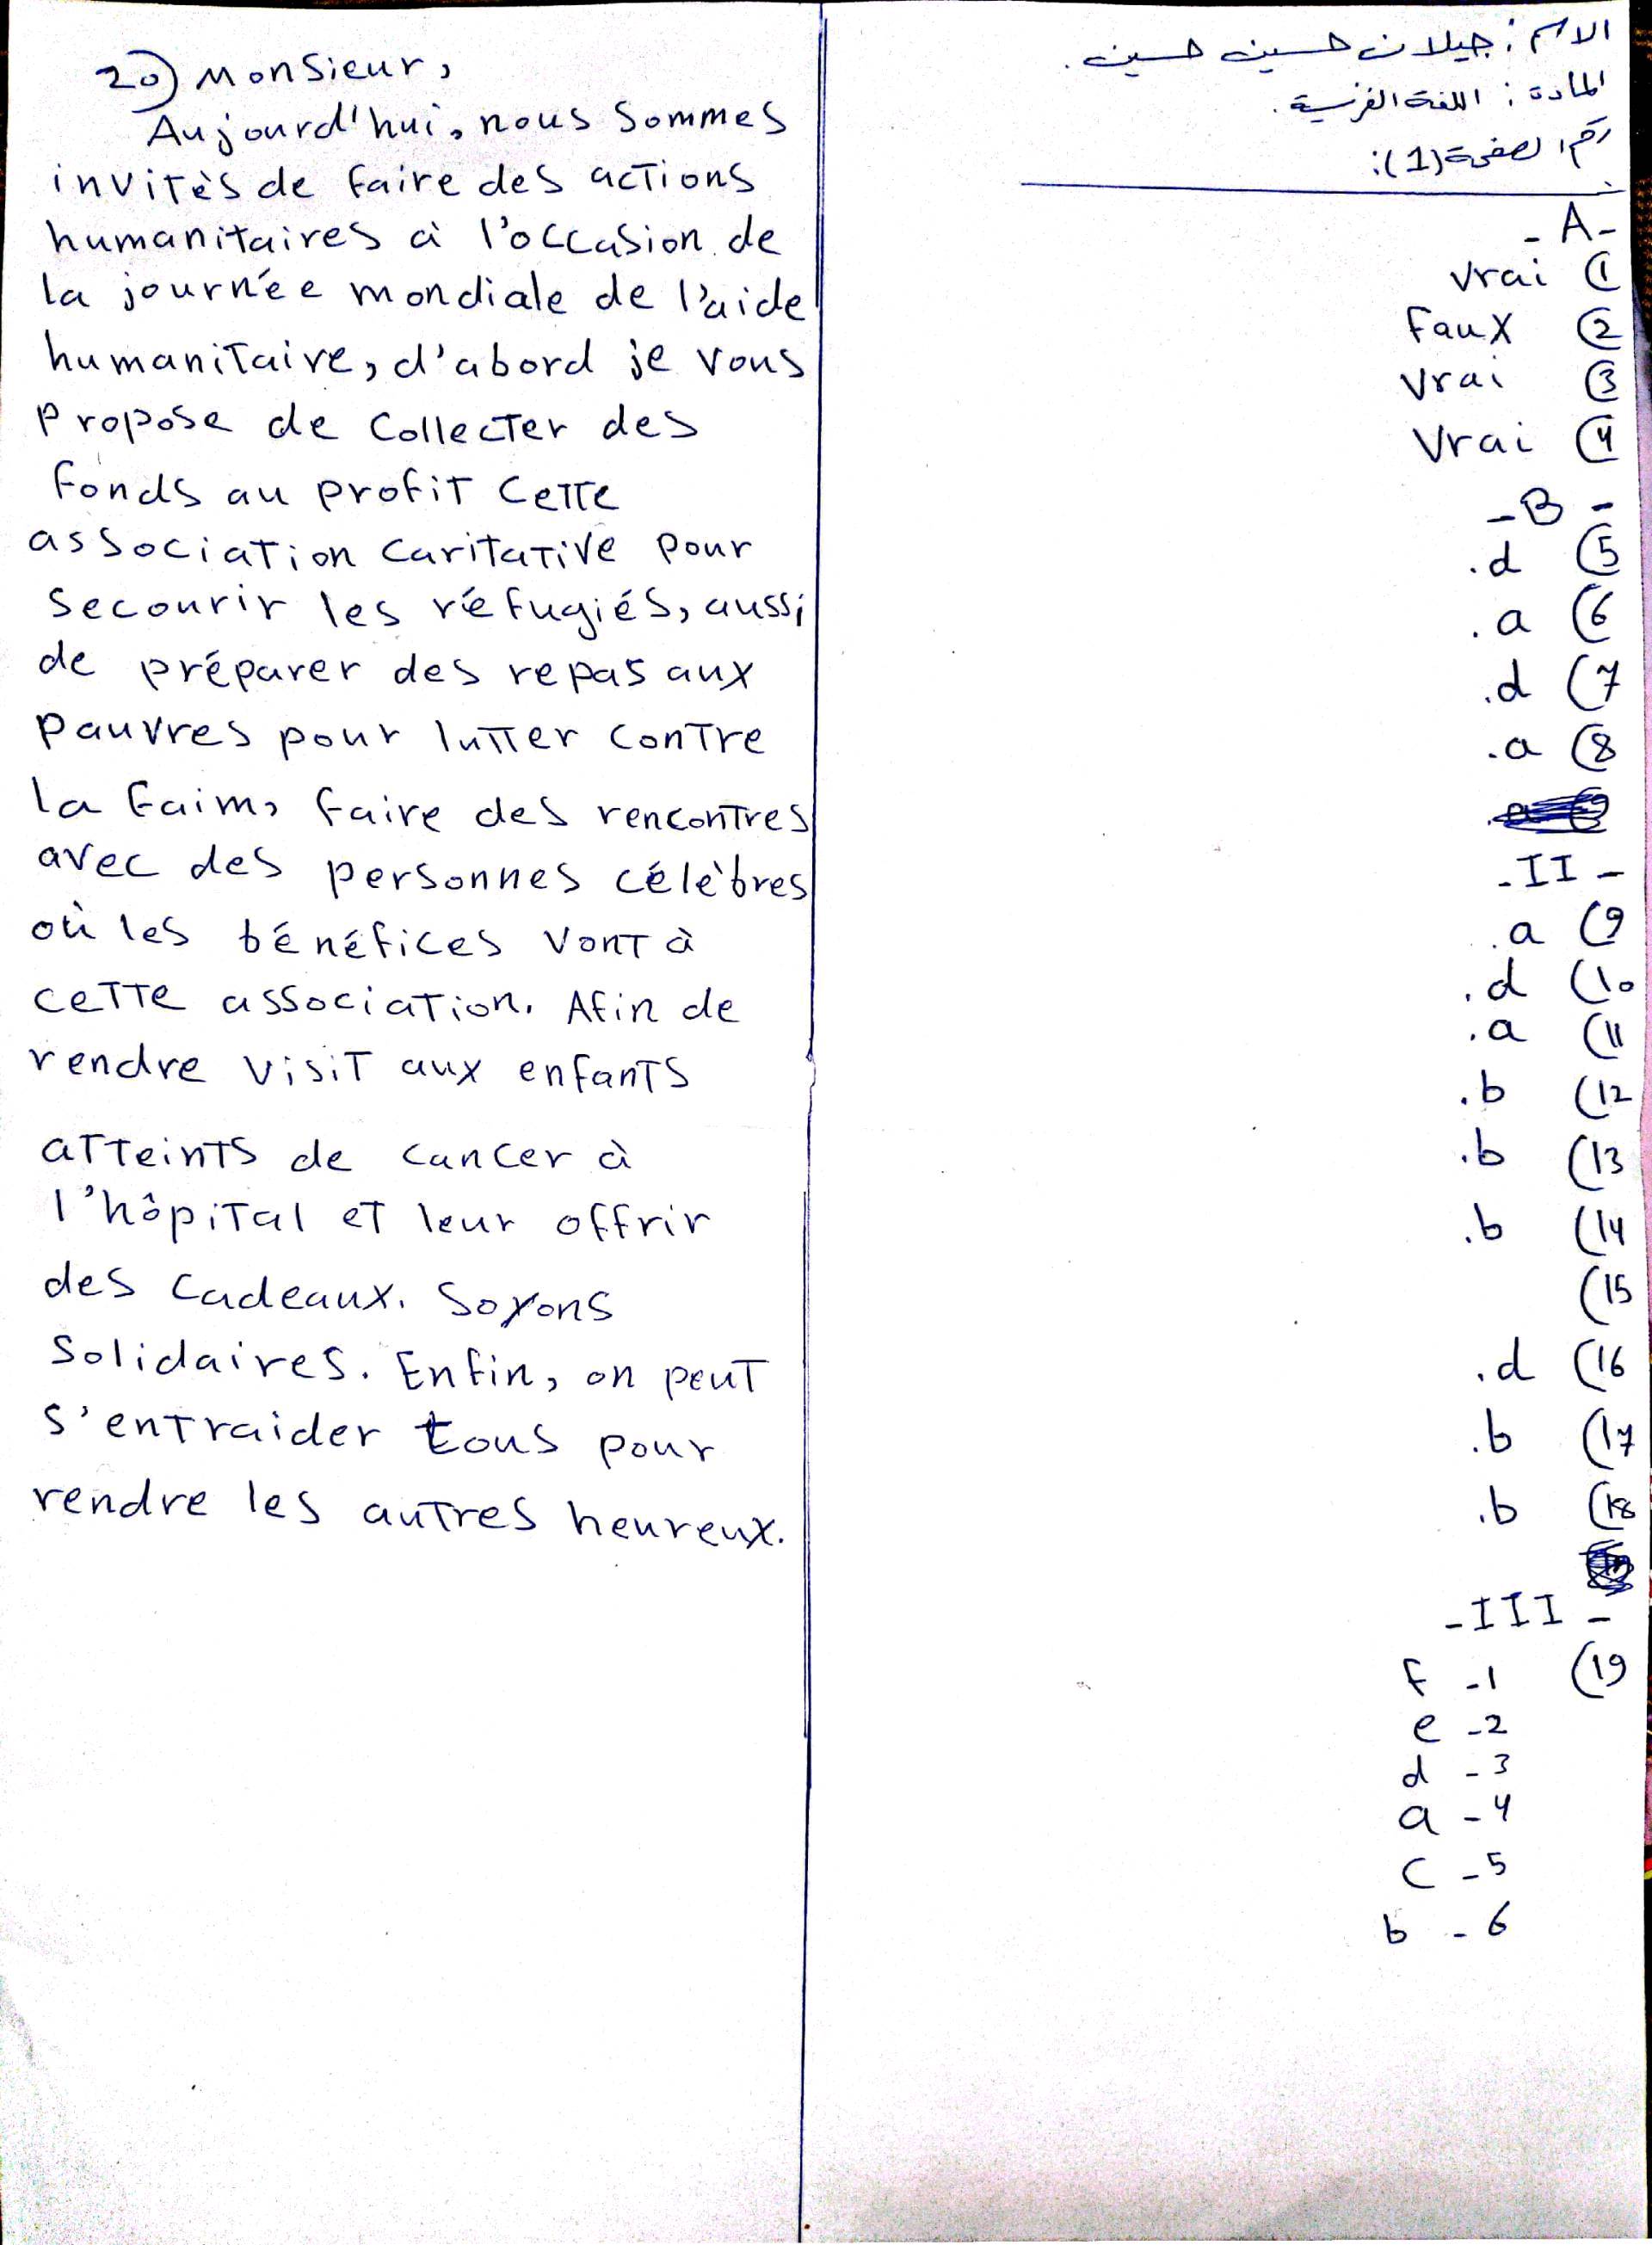 الاسم : جيلان حسين حسين.
المادة : اللغة الفرنسية.
رقم الصفحة (1):
- A -
1 vrai
2 Faux
3 vrai
4 Vrai
- B -
5) d.
6) a.
7) d.
8) a.
- II -
9) a.
10) d.
11) a.
12) b.
13) b.
14) b.
15)
16) d.
17) b.
18) b.
- III -
19) 1- f
2- e
3- d
4- a
5- c
6- b
20) Monsieur,
Aujourd'hui, nous sommes
invitès de faire des actions
humanitaires à l'occasion de
la journée mondiale de l'aide
humanitaire, d'abord je vous
propose de collecter des
fonds au profit cette
association caritative pour
secourir les réfugiés, aussi
de préparer des repas aux
pauvres pour lutter contre
la faim, faire des rencontres
avec des personnes célèbres
où les bénéfices vont à
cette association. Afin de
rendre visit aux enfants
atteints de cancer à
l'hôpital et leur offrir
des cadeaux. Soyons
solidaires. Enfin, on peut
s'entraider tous pour
rendre les autres heureux.